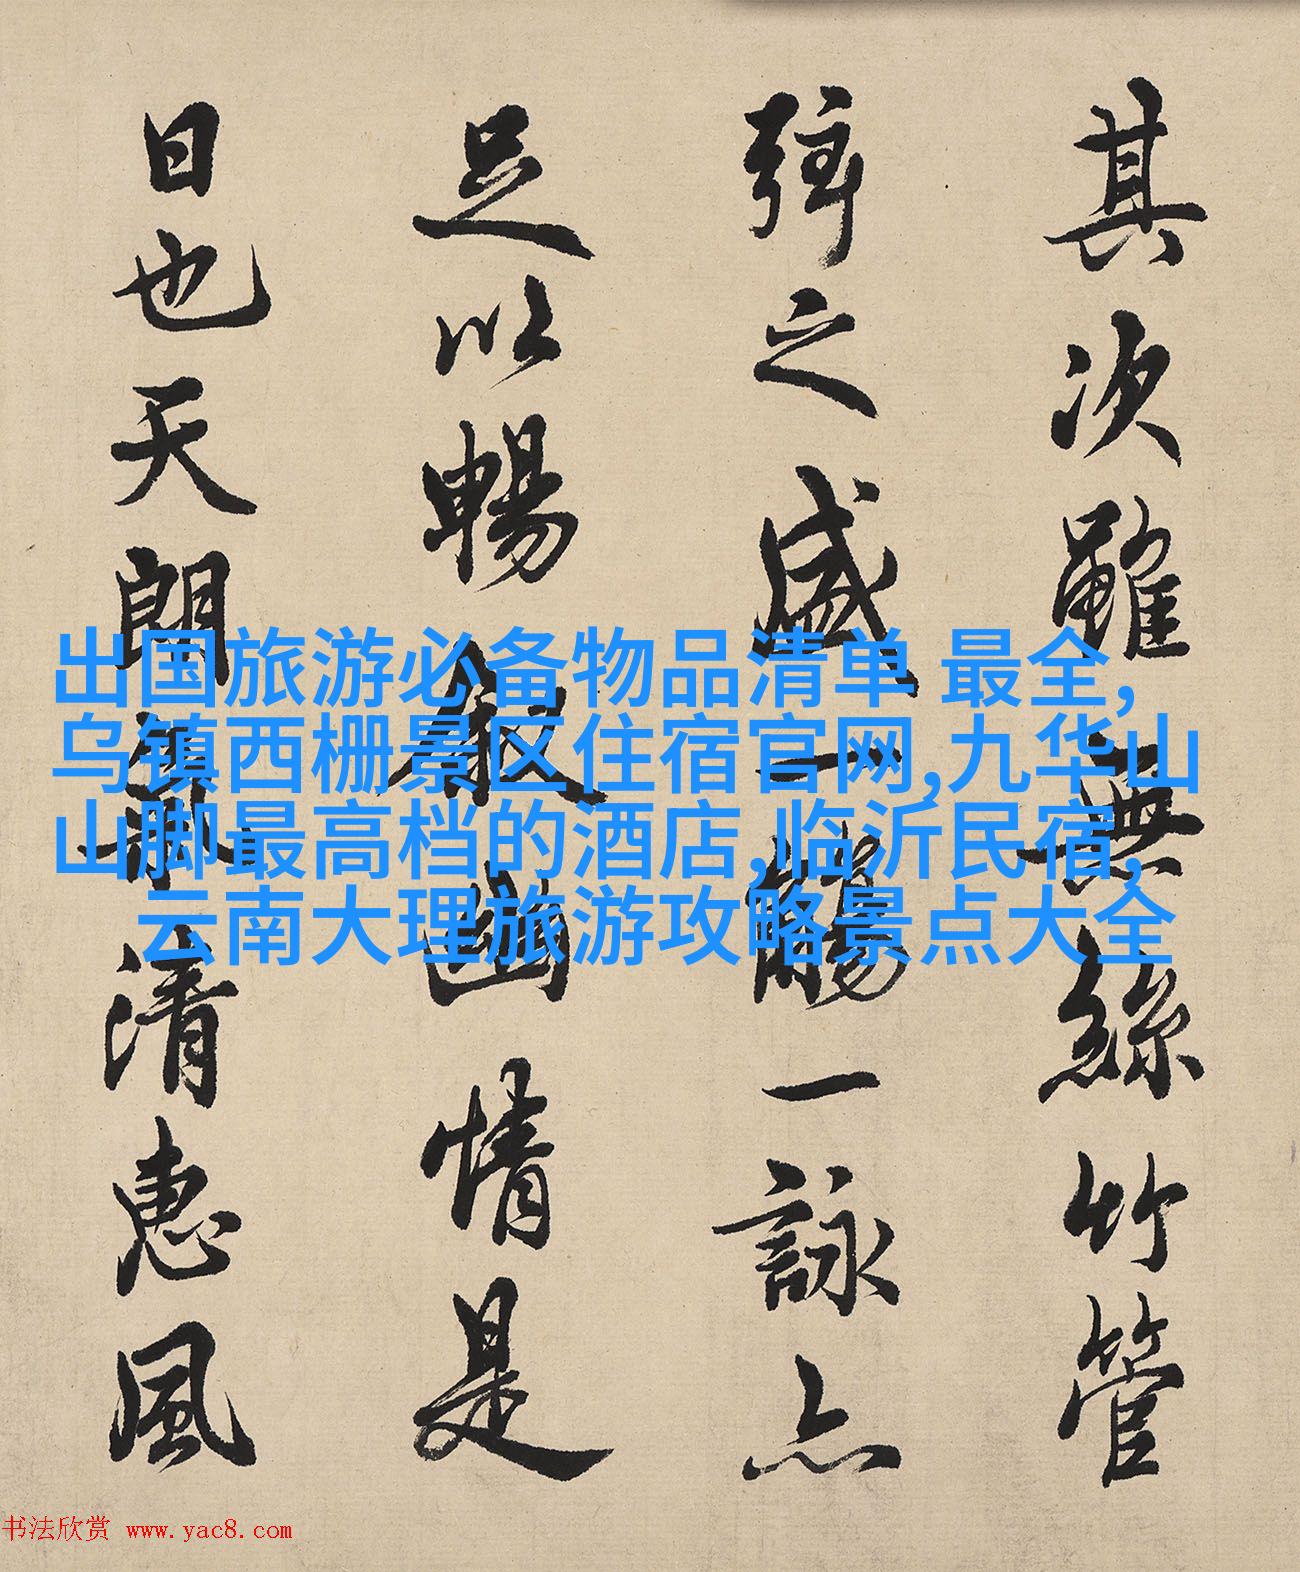 其次雖無絲竹管
弦之盛一觴一詠亦
足以暢叙幽情是
日也天朗氣清惠風
出国旅游必备物品清单 最全,
乌镇西栅景区住宿官网,九华山
山脚最高档的酒店,临沂民宿,
云南大理旅游攻略景点大全
书法欣赏 www.yac8.com